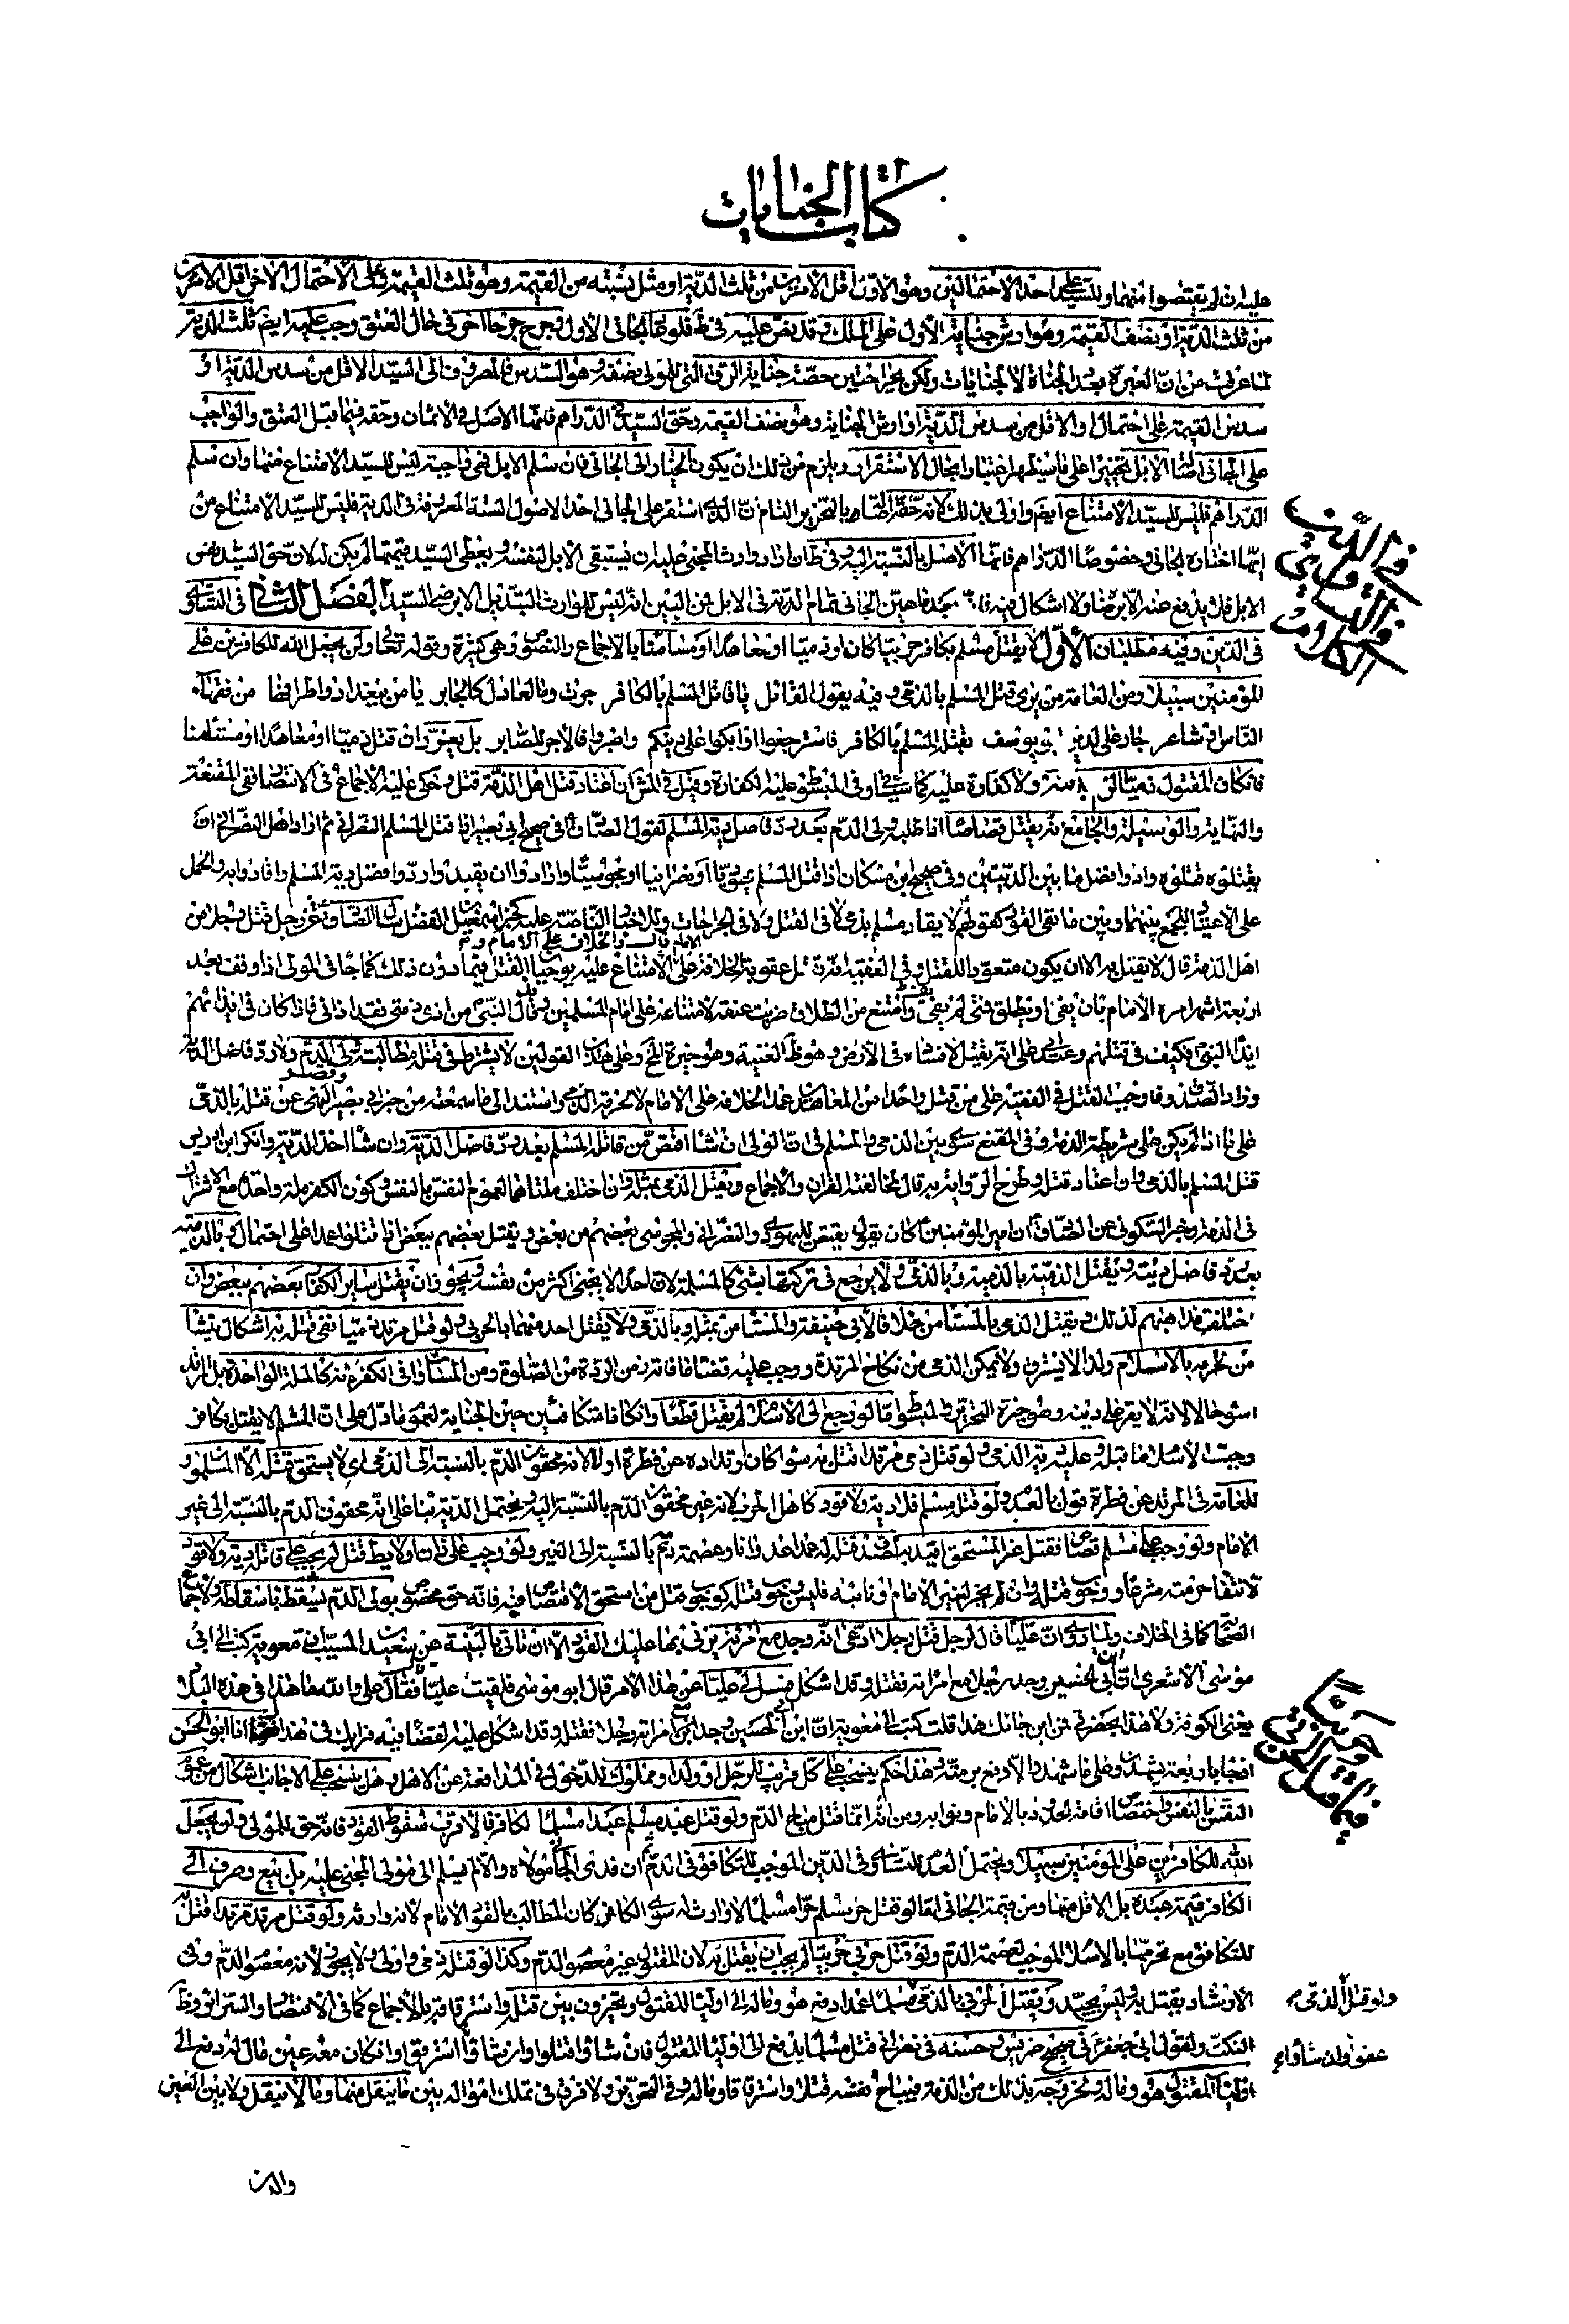 كتاب الجنايات
عليه ان لم يقتصوا منهما وللسيد على احد الاحتمالين وهو الاقوى اقل الامرين من ثلث الدية او مثل نسبته من القيمة وهو ثلث القيمة وعلى الاحتمال الاخر اقل الامرين
من ثلث الدية او نصف القيمة وهو ارش جناية الاول على الملك وقد نص عليه في ط فلو كان الجاني الاول جرح جرحا اخر في حال العتق وجب عليه ايضم ثلث الدية
لما عرفت من ان العبرة بعدد الجناة لا الجنايات ولكن بجراحتين حصة جناية الرق التي للمولى نصفه وهو السدس فالمصروف الى السيد الاقل من سدس الدية او
سدس القيمة على احتمال او الاقل من سدس الدية او ارش الجناية وهو نصف القيمة وحق السيد في الدراهم فانها الاصل في الاثمان وحقه فيما قبل العتق والواجب
على الجاني اصالة الابل تخييرا على ما سيظهر اعتبارا بحال الاستقرار ويلزم من ذلك ان يكون الخيار الى الجاني فان سلم الابل فهي واجبة ليس للسيد الامتناع منها وان سلم
الدراهم فليس للسيد الامتناع ايضم
انما اختاره الجاني خصوصا الدراهم فانها الاصل بالنسبة اليه وفي ط ان اراد وارث المجني عليه ان يستبقي الابل لنفسه ويعطى السيد قيمتها لم يكن له لان حق السيد
الابل فلا يدفع عنه الا برضاه ولا اشكال فيه الفصل الثاني في التساوي
في الدين وفيه مطلبان الاول لا يقتل مسلم بكافر حربيا كان او ذميا او معاهدا او مستامنا بالاجماع والنصوص وهي كثيرة وقوله تعالى ولن يجعل الله للكافرين على
المؤمنين سبيلا ومن العامة من يرى قتل المسلم بالذمي وفيه يقول القائل يا قاتل المسلم بالكافر جرت وما العادل كالجائر يا من ببغداد واطرافها من فقهاء
الناس او شاعر جار على الدين ابو يوسف بقتله المسلم بالكافر فاسترجعوا وابكوا على دينكم واصبروا فالاجر للصابر بل يعزر ان قتل ذميا او معاهدا او مستامنا
فان كان المقتول ذميا الزم بديته ولا كفارة عليه كما سياتي وفي المبسوط عليه الكفارة وقيل في المشهور ان اعتاد قتل اهل الذمة قتل وحكى عليه الاجماع في الانتصار ففي المقنعة
والنهاية والوسيلة والجامع انه يقتل قصاصا اذا طلبه ولي الدم بعد رد فاضل دية المسلم لقول الصادق في صحيح ابي بصير اذا قتل المسلم النصراني ثم اراد اهل النصراني ان
يقتلوه قتلوه وادوا فضل ما بين الديتين وفي صحيح ابن مسكان اذا قتل المسلم يهوديا او نصرانيا او مجوسيا وارادوا ان يقيدوا ردوا فضل دية المسلم واقادوا به والحمل
على الاعتياد للجمع بينهما وبين ما نفى القود كقولهم لا يقاد مسلم بذمي لا في القتل ولا في الجراحات وللاخبار الناصة عليه كخبر اسمعيل بن الفضل سال الصادق عن رجل قتل رجلا من
اهل الذمة قال لا يقتل به الا ان يكون متعود القتل وفي الفقيه عقوبة لخلافه على الامتناع عليه يوجب القتل فيما دون ذلك كما جاء في المولى اذا وقف بعد
اربعة اشهر امره الامام بان يفيء او يطلق فمتى لم يفئ وامتنع من الطلاق ضربت عنقه لامتناعه على امام المسلمين وقال النبي من اذى ذمتي فقد اذاني فاذا كان في ايذائهم
ايذاء النبي فكيف في قتلهم
وزاد الصدوق فاوجب القتل في الفقيه على من قتل واحدا من المعاهدين عمدا لخلافه على الامام لا لحرمة الذمي واستند الى ما سمعته من خبر ابي بصير النهي عن قتله بالذمي
على ما اذا لم يكن على شريطة الذمة وفي المقنع سوى بين الذمي والمسلم في ان الولي ان شاء اقتص من قاتله المسلم بعد رد فاضل الدية وان شاء اخذ الدية وانكر ابن ادريس
قتل المسلم بالذمي وان اعتاد قتله وطرح الرواية به قال لمخالفته القران والاجماع ويقتل الذمي بمثله وان اختلف ملتاهما لعموم النفس بالنفس وكون الكفر ملة واحدة مع الاشتراك
في الذمة وخبر السكوني عن الصادق ان امير المؤمنين كان يقول يقتص لليهودي والنصراني والمجوسي بعضهم من بعض ويقتل بعضهم ببعض اذا قتلوا عمدا على احتمال وبالذمية
بعد رد فاضل ديته ويقتل الذمية بالذمية وبالذمي ولا يرجع في تركتها بشيء كالمسلمة لان احدا لا يجني اكثر من نفسه ويجوز ان يقتل ساير الكفار بعضهم ببعض وان
اختلفت مذاهبهم لذلك ويقتل الذمي بالمستامن خلافا لابي حنيفة والمستامن بمثله وبالذمي ولا يقتل احد منهما بالحربي ولو قتل مرتد ذميا ففي قتله به اشكال ينشا
من تحرمه بالاسلام ولذا لا يسترق ولا يمكن الذمي من نكاح المرتدة ووجب عليه قضاء ما فاته زمن الردة من الصلوة ومن المساواة في الكفر فانه كالملة الواحدة بل المرتد
اسوء حالا لانه لا يقر على دينه وهو خيرة التحرير والمبسوط اما لو رجع الى الاسلام لم يقتل قطعا وان كانا متكافئين حين الجناية لعموم ما دل على ان المسلم لا يقتل بكافر
وجب الاسلام ما قبله وعليه دية الذمي ولو قتل ذمي مرتدا قتل به سواء كان ارتداده عن فطرة او لا لانه محقون الدم بالنسبة الى الذمي اذ لا يستحق قتله الا المسلمون
للعامة في المرتد عن فطرة قول بالعدم ولو قتله مسلم فلا دية ولا قود كاهل الحرب لانه غير محقون الدم بالنسبة اليه ويحتمل الدية بناء على انه محقون الدم بالنسبة الى غير
الامام ولو وجب على مسلم قصاص فقتله غير المستحق اقيد به لصدق قتله له عمدا عدوانا وعصمة دمه بالنسبة الى الغير ولو وجب قتله بزنا او لواط فقتله لم يجب على قاتله دية ولا قود
لانتفاء حرمته شرعا ووجوب قتله وان لم يجز لغير الامام او نائبه فليس وجوب قتله كوجوب قتل من استحق الاقتصاص منه فانه حق مخصوص بولي الدم يسقط باسقاطه ولاجماع
الصحابة كما في الخلاف ولما روى ان عليا قال لرجل قتل رجلا ادعى انه وجده مع امرءته يزني بها عليك القود الا ان تاتي بالبينة عن سعيد بن المسيب ان معوية كتب الى ابي
موسى الاشعري ان ابن ابي الحسين وجد رجلا مع امراته فقتله وقد اشكل فسل لي عليا عن هذا الامر قال ابو موسى فلقيت عليا فقال علي والله ما هذا في هذه البلاد
يعني الكوفة ولا هذا بحضرتي فمن اين جاءك هذا قلت كتب الي معوية ان ابن ابي الحسين وجد مع امراته رجلا فقتله وقد اشكل عليه القضاء فيه فرايك في هذا فقال انا ابو الحسن
ان جاء باربعة يشهدون على ما شهد والا دفع برمته وهذا الحكم ينسحب على كل قريب للرجل او ولد او مملوك للدخول في المدافعة عن الاهل وهل ينسحب على الاجانب اشكال من عموم
النفس بالنفس واختصاص اقامة الحدود بالامام ونوابه ومن انه انما قتل مباح الدم ولو قتل عبد مسلم عبدا مسلما لكافر فالاقرب سقوط القود فانه حق للمولى ولن يجعل
الله للكافرين على المؤمنين سبيلا ويحتمل العدم للتساوي في الدين الموجب للتكافؤ في الدم ثم ان فدى الجاني مولاه والا لم يسلم الى مولى المجني عليه بل بيع وصرف الى
الكافر قيمة عبده بل الاقل منها ومن قيمة الجاني اما لو قتل حر مسلم حرا مسلما لا وارث له سوى الكافر كان المطالب بالقود الامام لانه وارثه ولو قتل مرتد مرتدا قتل به
للتكافؤ مع تحرمهما بالاسلام الموجب لعصمة الدم ولو قتل حربي حربيا لم يجب ان يقتل به لان المقتول غير معصوم الدم وكذا لو قتله ذمي واولى ولا يجوز لانه معصوم الدم وفي
الارشاد يقتل به وليس بجيد ويقتل الحربي بالذمي مسلما عمدا دفع هو وماله الى اولياء المقتول ويتخيرون بين قتله واسترقاقه بالاجماع كما في الانتصار والسرائر وظ
النكت ولقول ابي جعفر في صحيح ضريس وحسنه في نصراني قتل مسلما يدفع الى اولياء المقتول فان شاؤا قتلوا وان شاؤا استرقوا وان كان معه عين قال له دفع الى
اولياء المقتول هو وماله ولخروجه بذلك من الذمة فيباح نفسه قتلا واسترقاقا وماله ولا فرق في تملك امواله بين ما ينقل منها وما لا ينقل ولا بين العين
ولو قتل الذمي
عفوا وان شاؤا
والدين